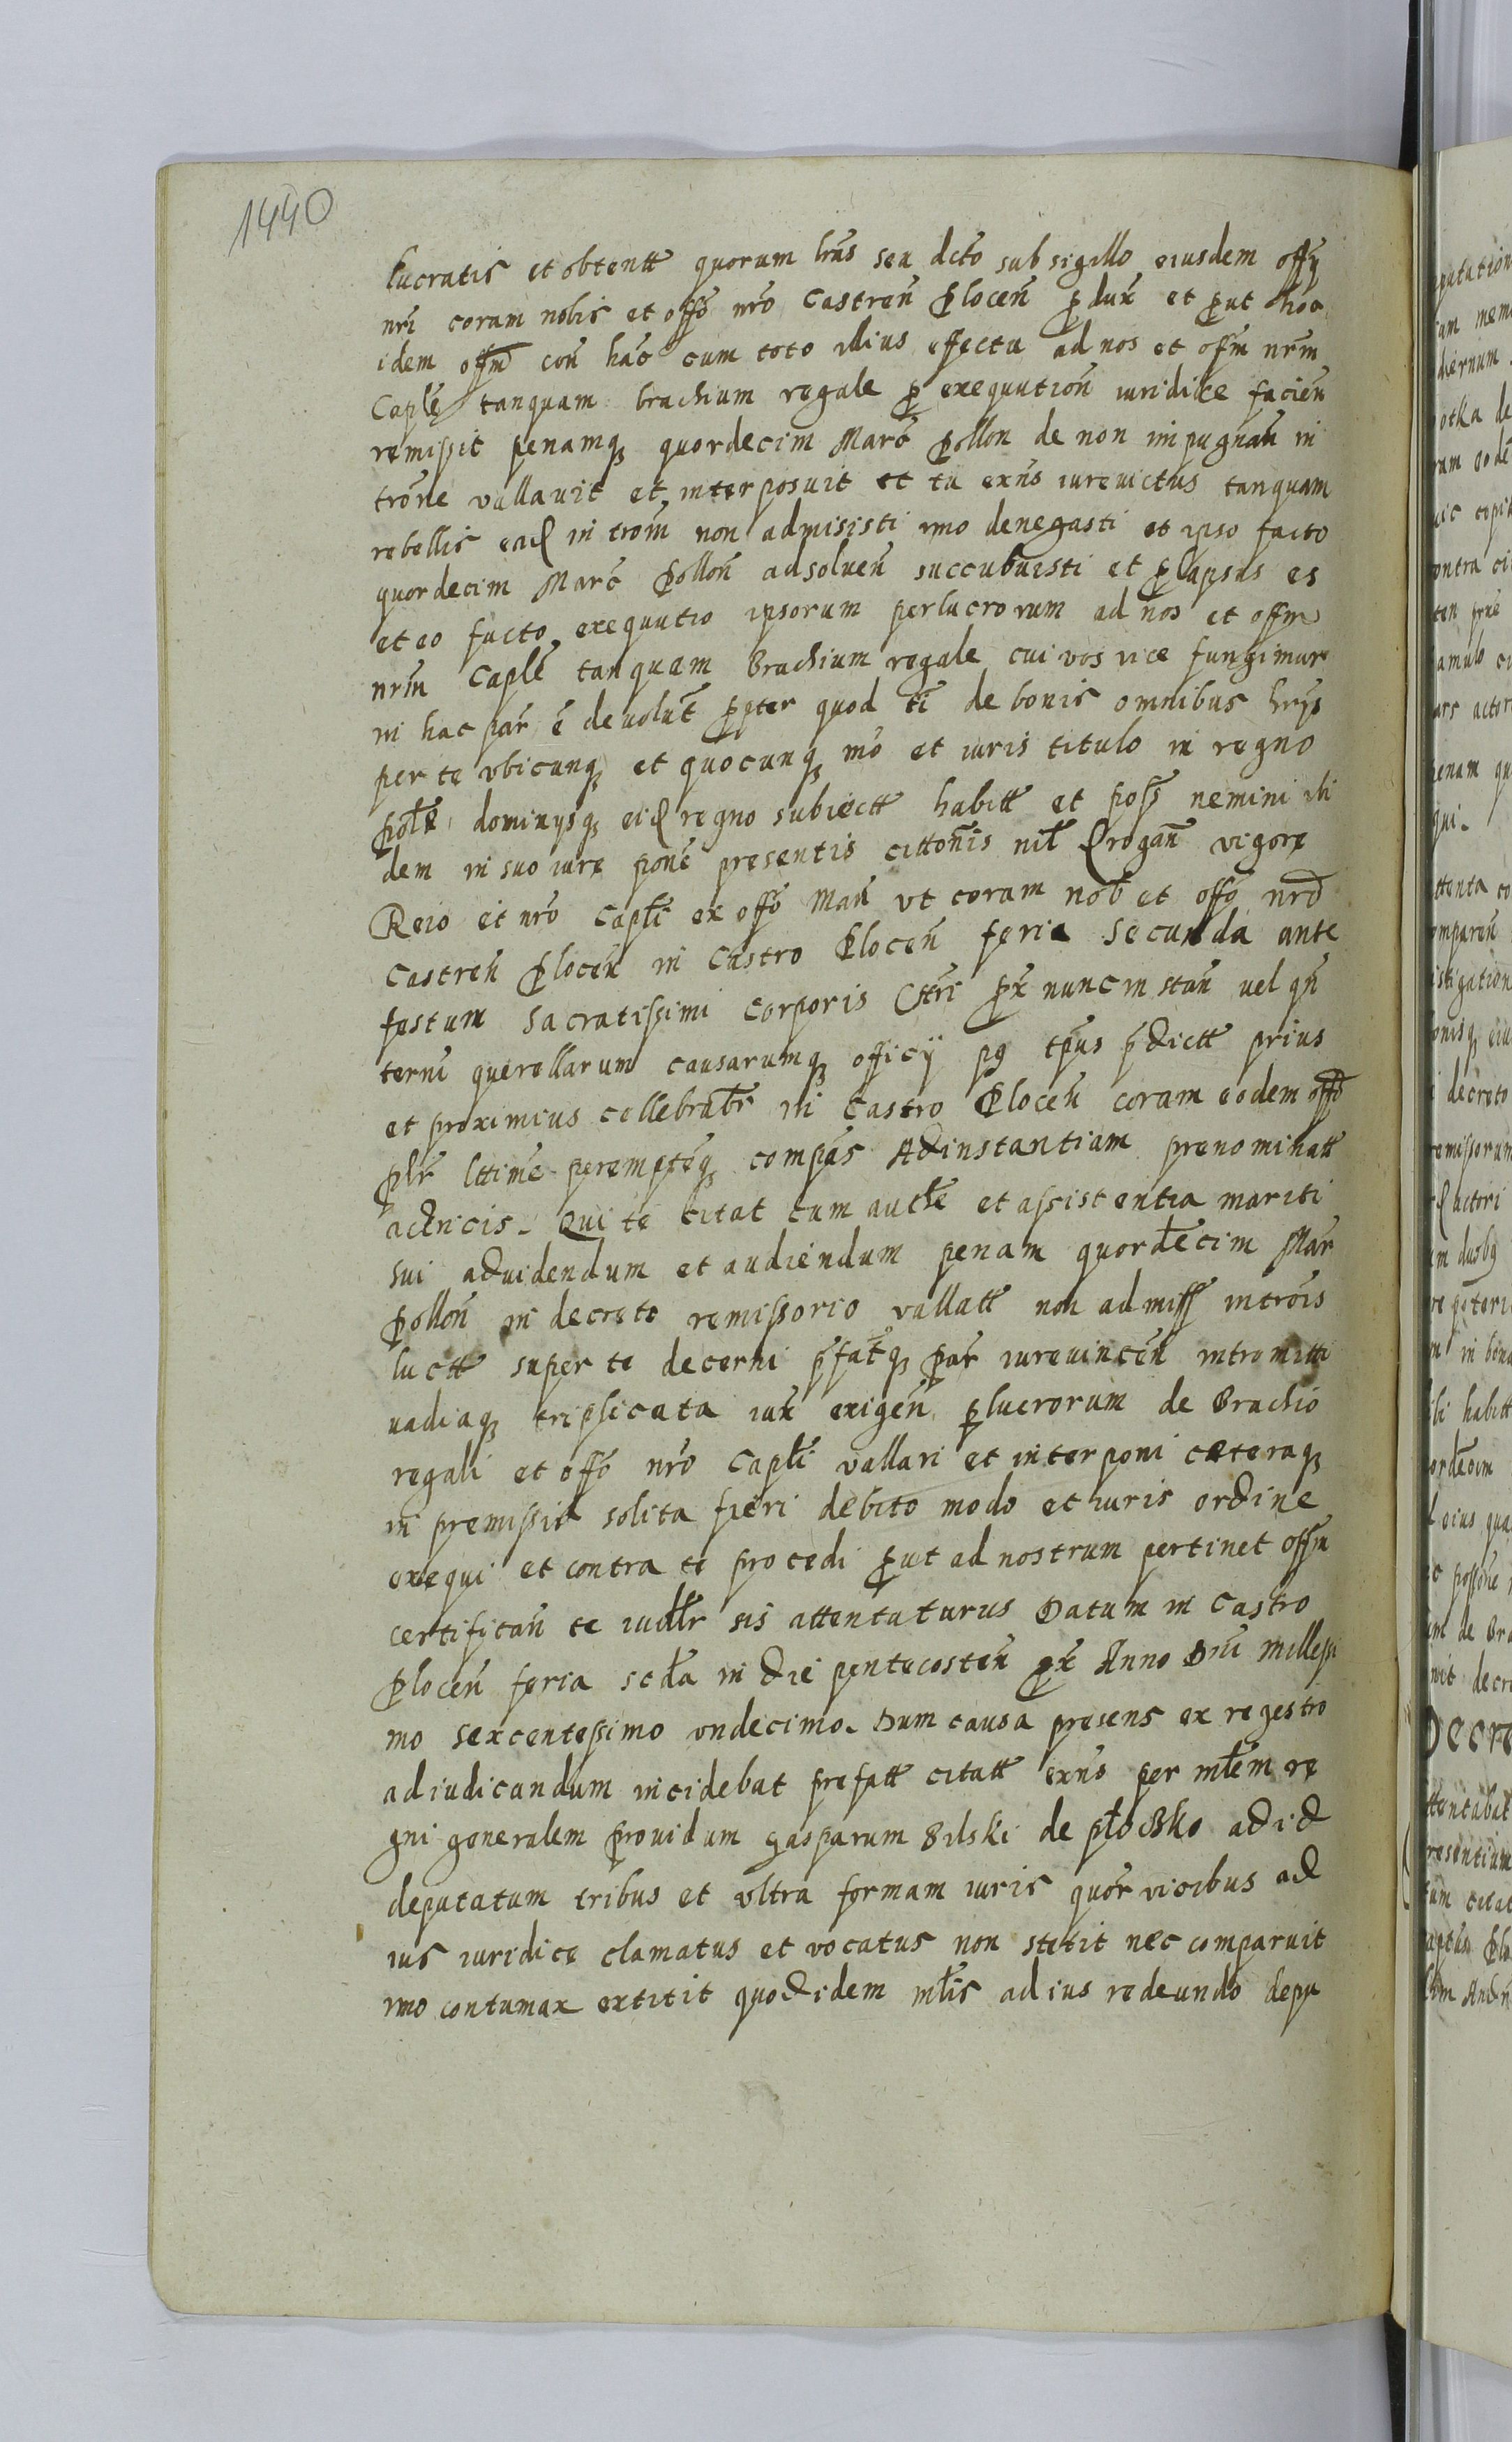 1440
lucratis et obtentt quorum lras seu dcto sub sigillo eiusdem offy
nri coram nobis et offo nro Castren Plocen pdux et put hoc
idem offm con hac cum toto illius effectu ad nos et offm nrm
Caple tanquam brachium regale p exequution iuridice facien
remissit penamq quordecim Marc Pollon de non impugnan in
trone vallavit et interposuit et tu exns iurevictus tanquam
rebellis ead introm non admisisti imo denegasti et ipso facto
quordecim Marc Pollon adsoluen succubuisti et plapsus es
et eo facto exequutio ipsorum perlucrorum ad nos et offm
nrm Caple tanquam Brachium regale cui vos vice fungimur
in hac par e devolut ppter quod ti de bonis omnibus hrys
per te vbicunq et quocunq mo et iuris titulo in regno
Pole dominysq eid regno subiectt habitt et poss nemini ibi
dem in suo iure pone presentis cittonis nil drogan vigore
Reio et nro Capli ex offo Man vt coram nob et offo nro
Castren Plocen in Castro Plocen feria secunda ante
festum Sacratissimi Corporis Cstri px nunc instan vel qn
termi querellarum causarumq officÿ pq tpus pdictt prius
et proximius cellebrabr in Castro Plocen coram eodem offo
plr lttime peremptoq compas Ad instantiam prenominatt
actricis. Qui te citat cum authe et assistentia mariti
sui ad videndum et audiendum penam quordecim Mar
Pollon in decreto remissorio vallatt non admiss introis
luctt super te decerni pfatq par iurevincen intromitti
uadiaq triplicata iux exigen plucrorum de Brachio
regali et offo nro Capli vallari et interponi ceteraq
in premissis solita fieri debito modo et iuris ordine
exequi et contra te procedi put ad nostrum pertinet offm
certifican te iudlr sis attentaturus Datum in Castro
Plocen feria scda in die pentecosten px Anno Dni Millessi
mo sexcentessimo vndecimo. Dum causa presens ex regestro
ad iudicandum incidebat prefatt citatt exns per mlem re
gni generalem Providum Gasparum Bilski de płocsko ad id
deputatum tribus et vltra formam iuris quor vicibus ad
ius iuridice clamatus et vocatus non stetit nec comparuit
imo contumax extitit quod idem mlis ad ius redeundo depu